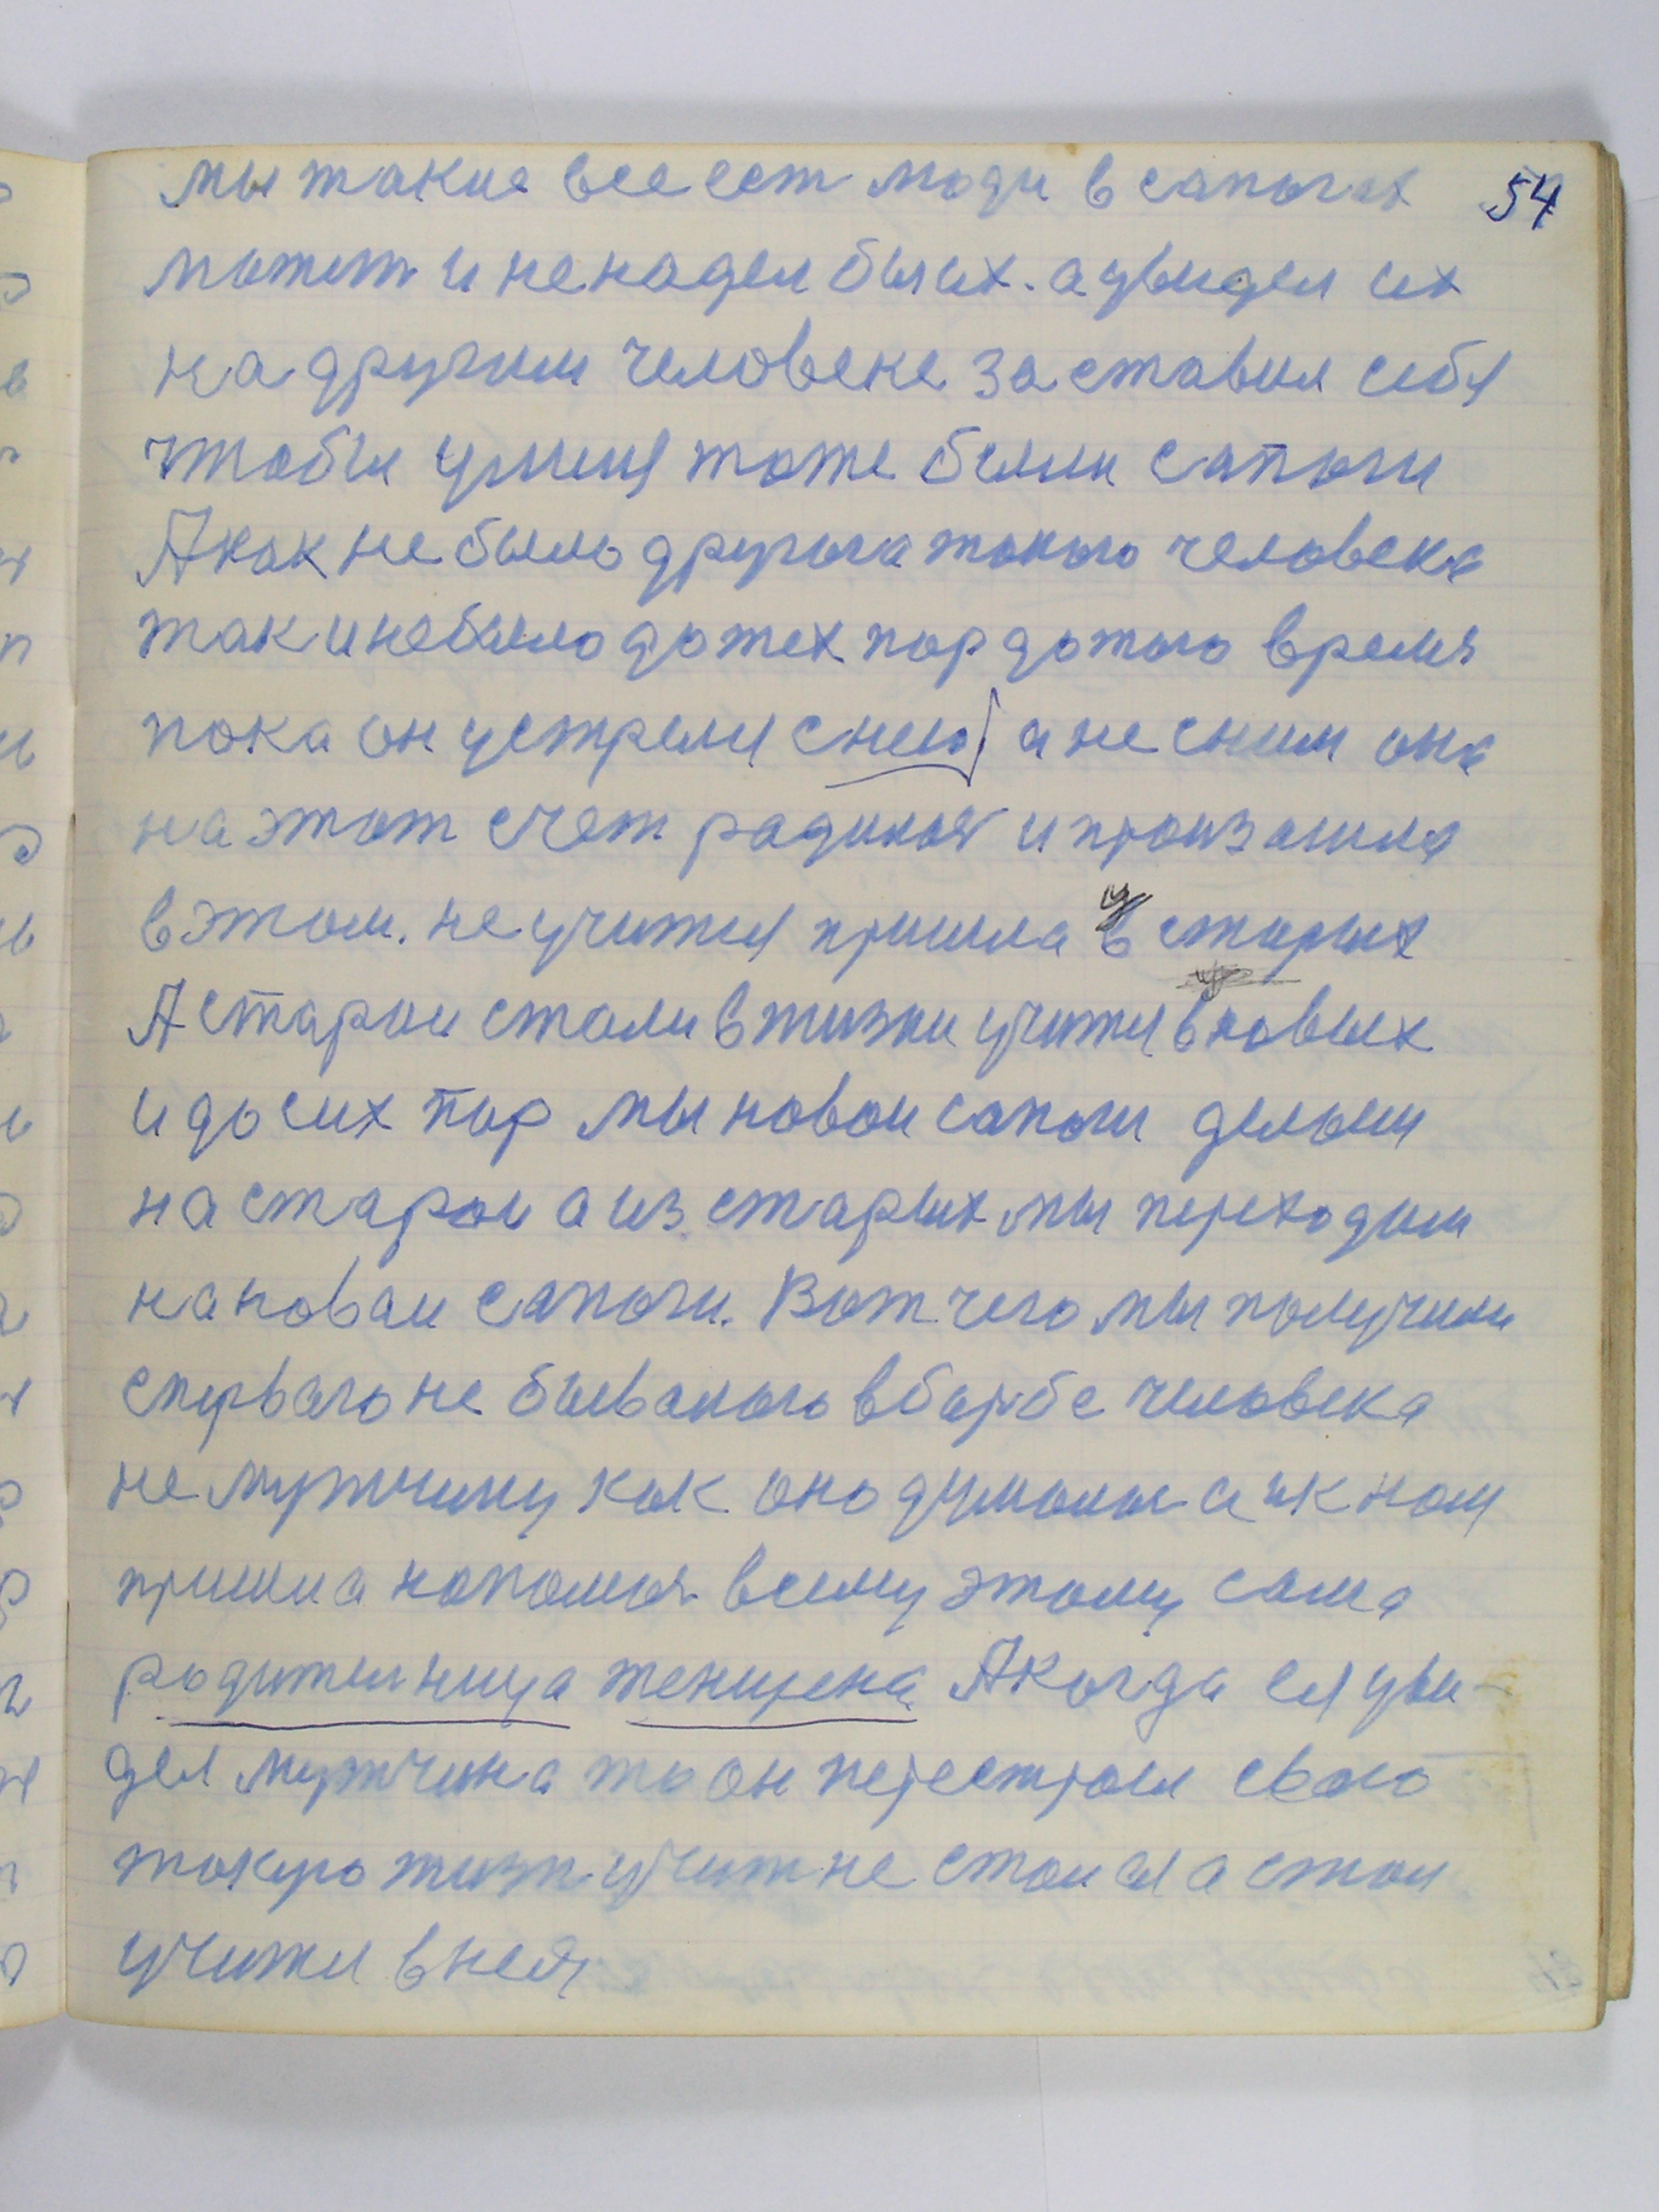 54
мы такие все ест люди в сапогах
может и не надел бы их. а увидел их
на другим человеке заставил себя
чтобы у меня тоже были сапоги
А как не было другога такого человека
так и небыло до тех пор до того время
пока он устрелся снею а не сним она
на этот счет радилая и произашла
в этом. не учится пришла у старых
А старои стали в жизни учится в новых
и до сих пор мы новои сапоги делаем
на старои а из старых мы переходим
на новаи сапоги. Вот чего мы получили
с первого не бывалого в барбе человека
не мужчину как оно думалас а ик нам
пришла напомоч всему этому сама
родительница женщена А когда ея уви-
дел мужчина то он перестроил свою
такую жизн учит не стои ся а стои
учится в нея